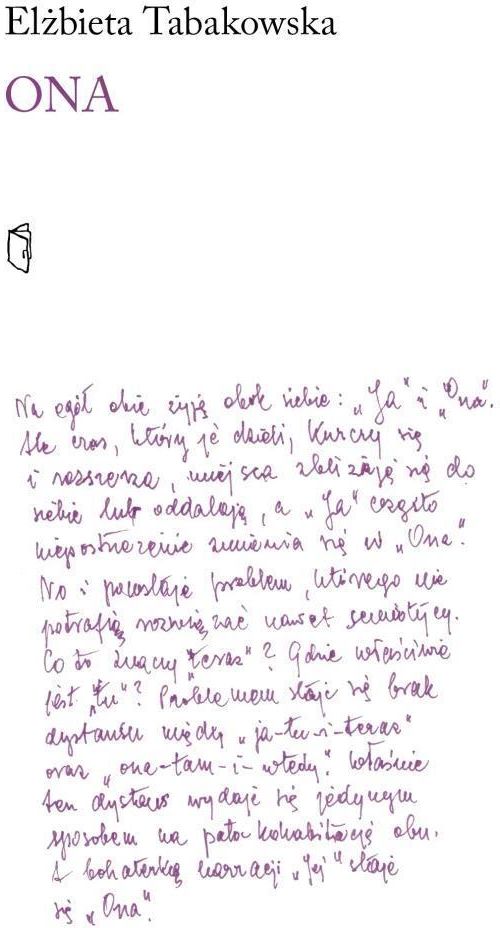 Elżbieta Tabakowska
ONA
Na ogół obie żyją obok siebie: „Ja” i „Ona”.
Ale czas, który je dzieli, kurczy się
i rozszerza, miejsca zbliżają się do
siebie lub oddalają, a „Ja” często
niepostrzeżenie zmienia się w „Ona”.
No i powstaje problem, którego nie
potrafią rozwiązać nawet semiotycy.
Co to znaczy „teraz”? Gdzie właściwie
jest „tu”? Problemem staje się brak
dystansu między „ja-tu-i-teraz”
oraz „ona-tam-i-wtedy”. Właśnie
ten dystans wydaje się jedynym
sposobem na pełną kohabitację obu.
A bohaterką narracji „Jej” staje
się „Ona”.